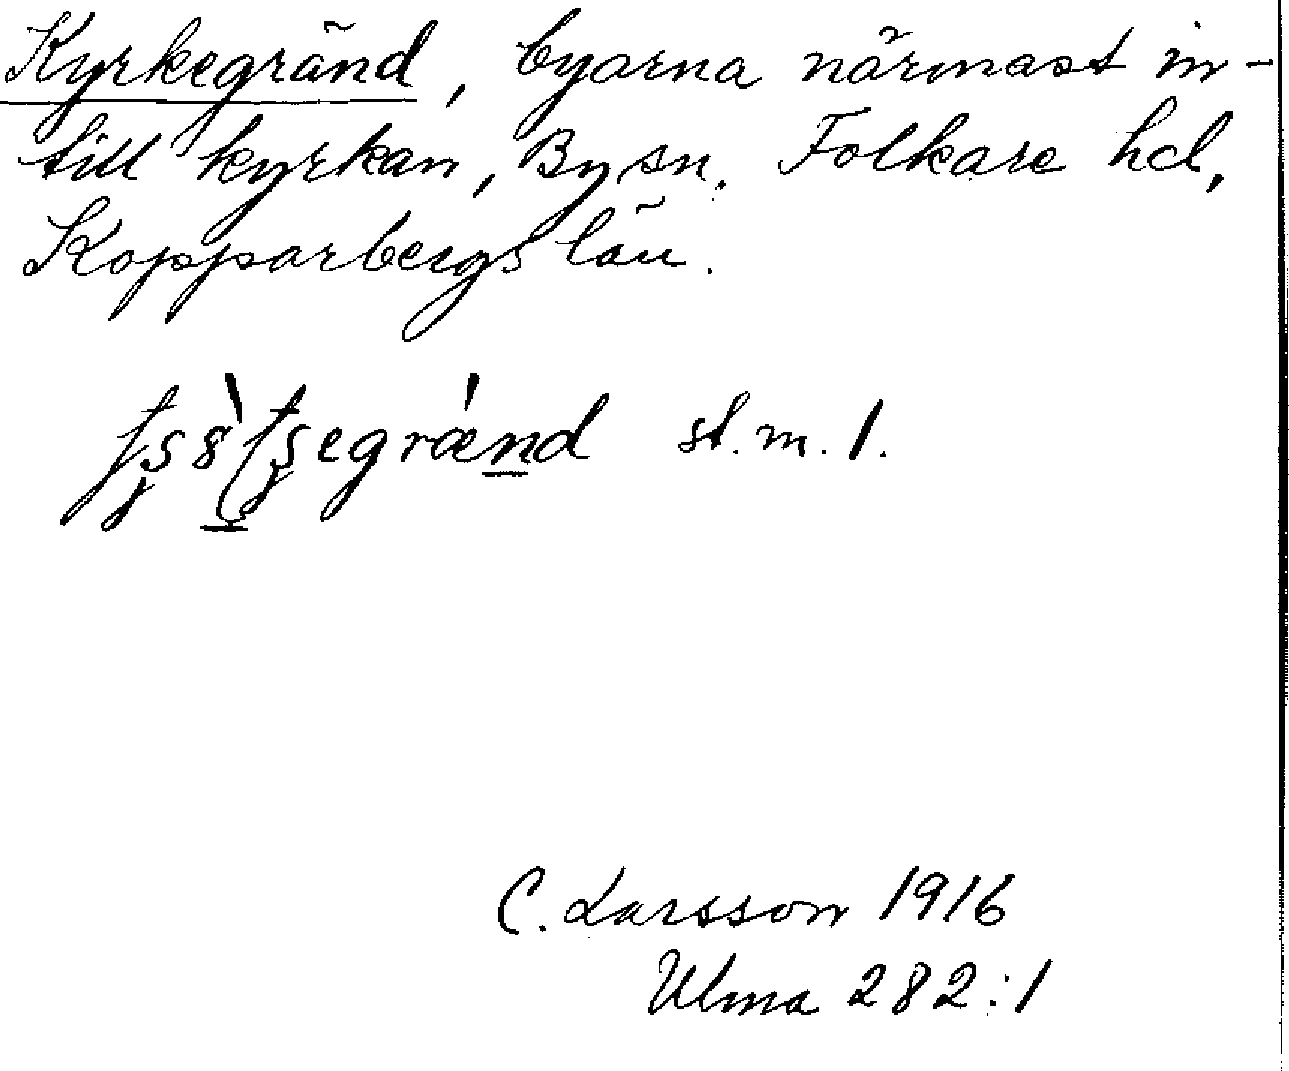 Kyrkegränd, byarna närmast in-
till kyrkan, By sn. Folkare hd,
Kopparbergs län.
st. m. 1.
C. Larsson 1916
Ulma 282:1